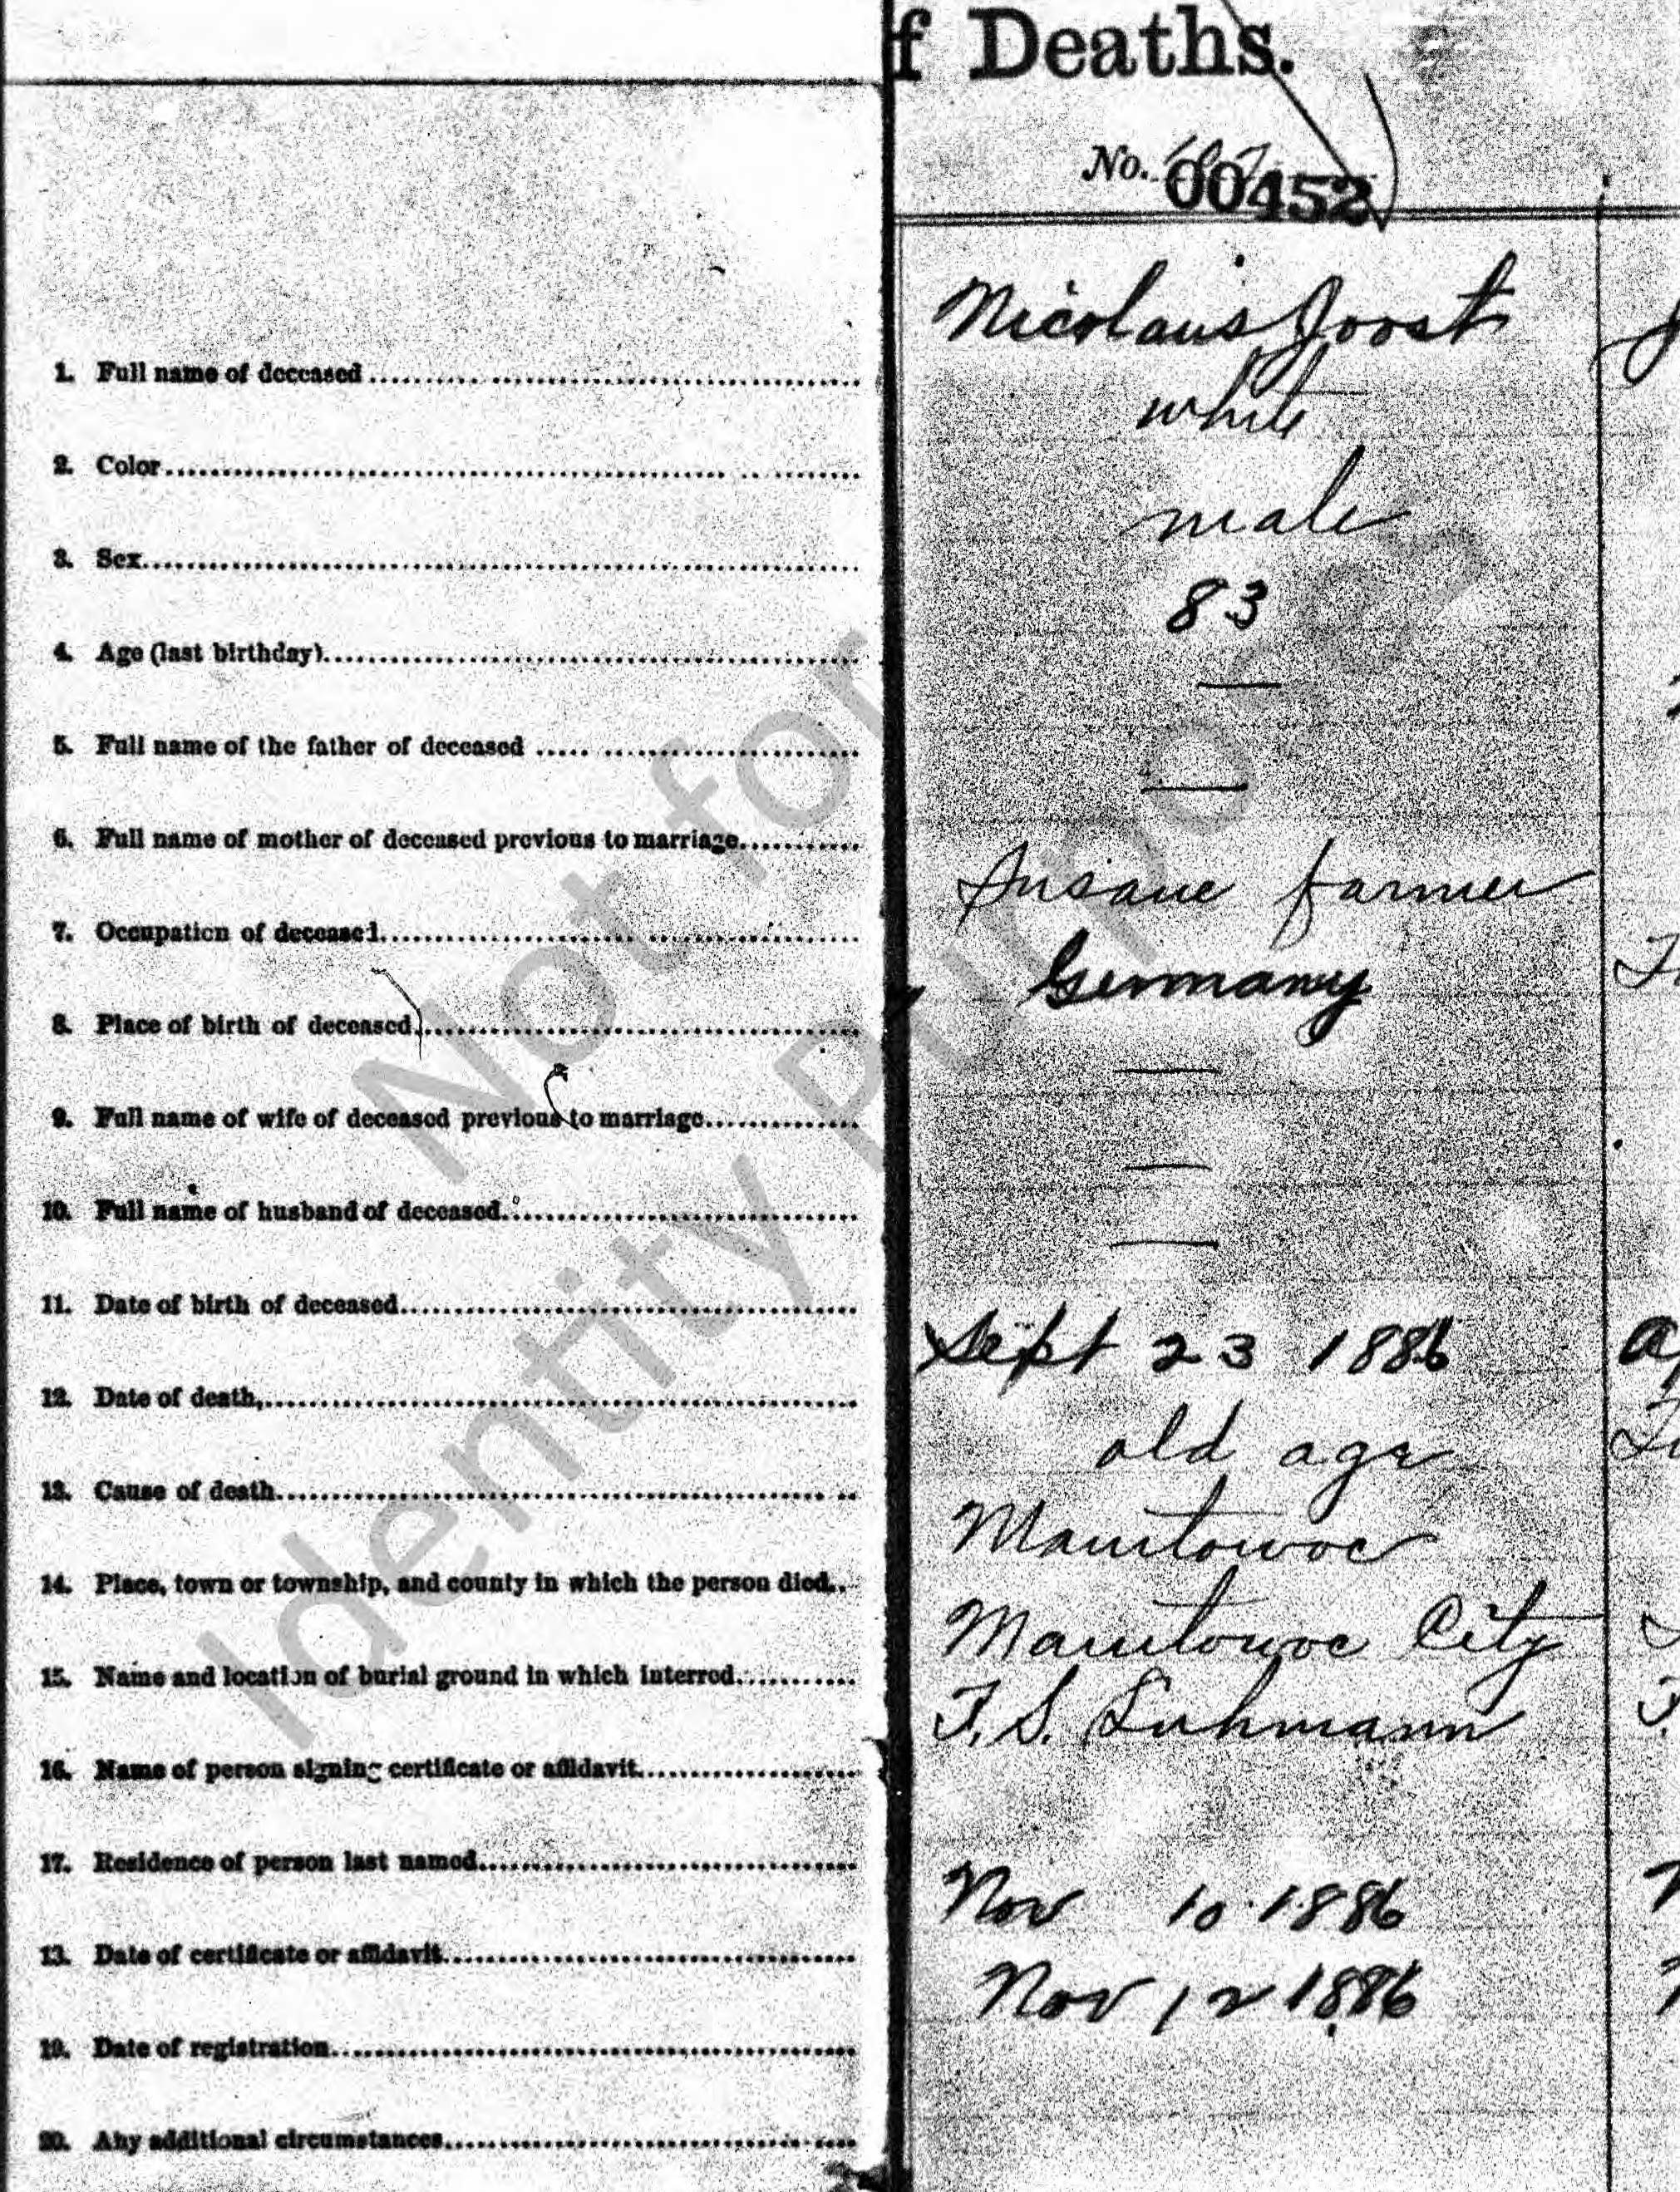 f Deaths.
No. 00452
Nicolaus Joost
1. Full name of deceased
white
2. Color
male
3. Sex
83
4. Age (last birthday)
—
5. Full name of the father of deceased
—
6. Full name of mother of deceased previous to marriage
Insane farmer
7. Occupation of deceased
Germany
8. Place of birth of deceased
—
9. Full name of wife of deceased previous to marriage
—
10. Full name of husband of deceased
—
11. Date of birth of deceased
Sept 23 1886
12. Date of death,
old age
13. Cause of death
Manitowoc
14. Place, town or township, and county in which the person died
Manitowoc City
15. Name and location of burial ground in which interred
F. S. Luhmann
16. Name of person signing certificate or affidavit
17. Residence of person last named
Nov 10 1886
13. Date of certificate or affidavit
Nov 12 1886
19. Date of registration
20. Any additional circumstances
Not for
Identity Purposes